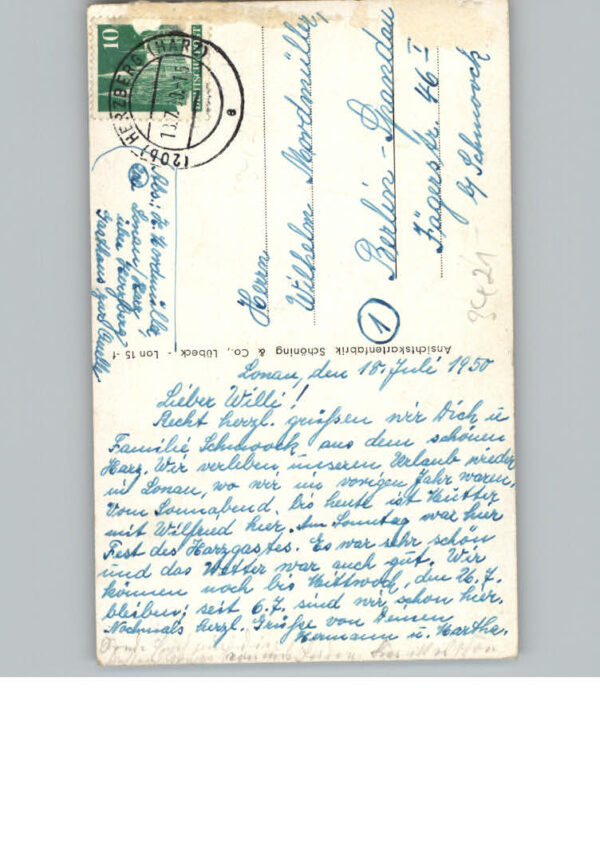 10
(20b) HERZBERG (HARZ)
e
Abs: H. Nordmüller
Lonau/Harz
über Herzberg
Gasthaus zur Quelle
Herrn
Wilhelm Nordmüller,
Berlin-Spandau
Jägerstr. 46 I
b/ Schmoock
1
Ansichtskartenfabrik Schöning & Co., Lübeck - Lon 15
Lonau, den 18. Juli 1950
Lieber Willi!
Recht herzl. grüßen wir Dich u
Familie Schmoock aus dem schönen
Harz. Wir verleben unseren Urlaub wieder
in Lonau, wo wir im vorigen Jahr waren.
Vom Sonnabend bis heute ist Mutter
mit Wilfried hier. Am Sonntag war hier
Fest des Harzgastes. Es war sehr schön
und das Wetter war auch gut. Wir
können noch bis Mittwoch, den 26.7.
bleiben; seit 6.7. sind wir schon hier.
Nochmals herzl. Grüße von Deinen
Hermann u. Martha.